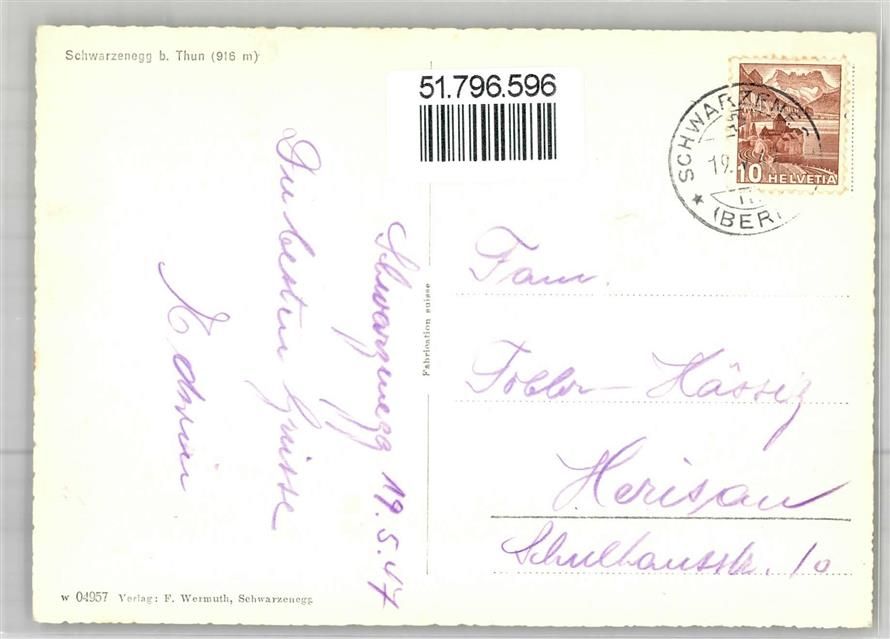 Schwarzenegg b. Thun (916 m)
51.796.596
SCHWARZENEGG
19.
(BERN)
10 HELVETIA
Schwarzenegg 19.5.47
Die besten Grüsse
Fabrication suisse
Fam.
Tobler-Hässig
Herisau
Schulhausstr. 10
w 04957 Verlag: F. Wermuth, Schwarzenegg